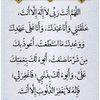 اللَّهُمَّ أَنْتَ رَبِّي لَا إِلَهَ إِلَّا أَنْتَ،
خَلَقْتَنِي وَأَنَا عَبْدُكَ، وَأَنَا عَلَى عَهْدِكَ
وَوَعْدِكَ مَا اسْتَطَعْتُ، أَعُوذُ بِكَ
مِنْ شَرِّ مَا صَنَعْتُ، أَبُوءُ لَكَ بِنِعْمَتِكَ
عَلَيَّ، وَأَبُوءُ بِذَنْبِي فَاغْفِرْ لِي،
فَإِنَّهُ لَا يَغْفِرُ الذُّنُوبَ إِلَّا أَنْتَ